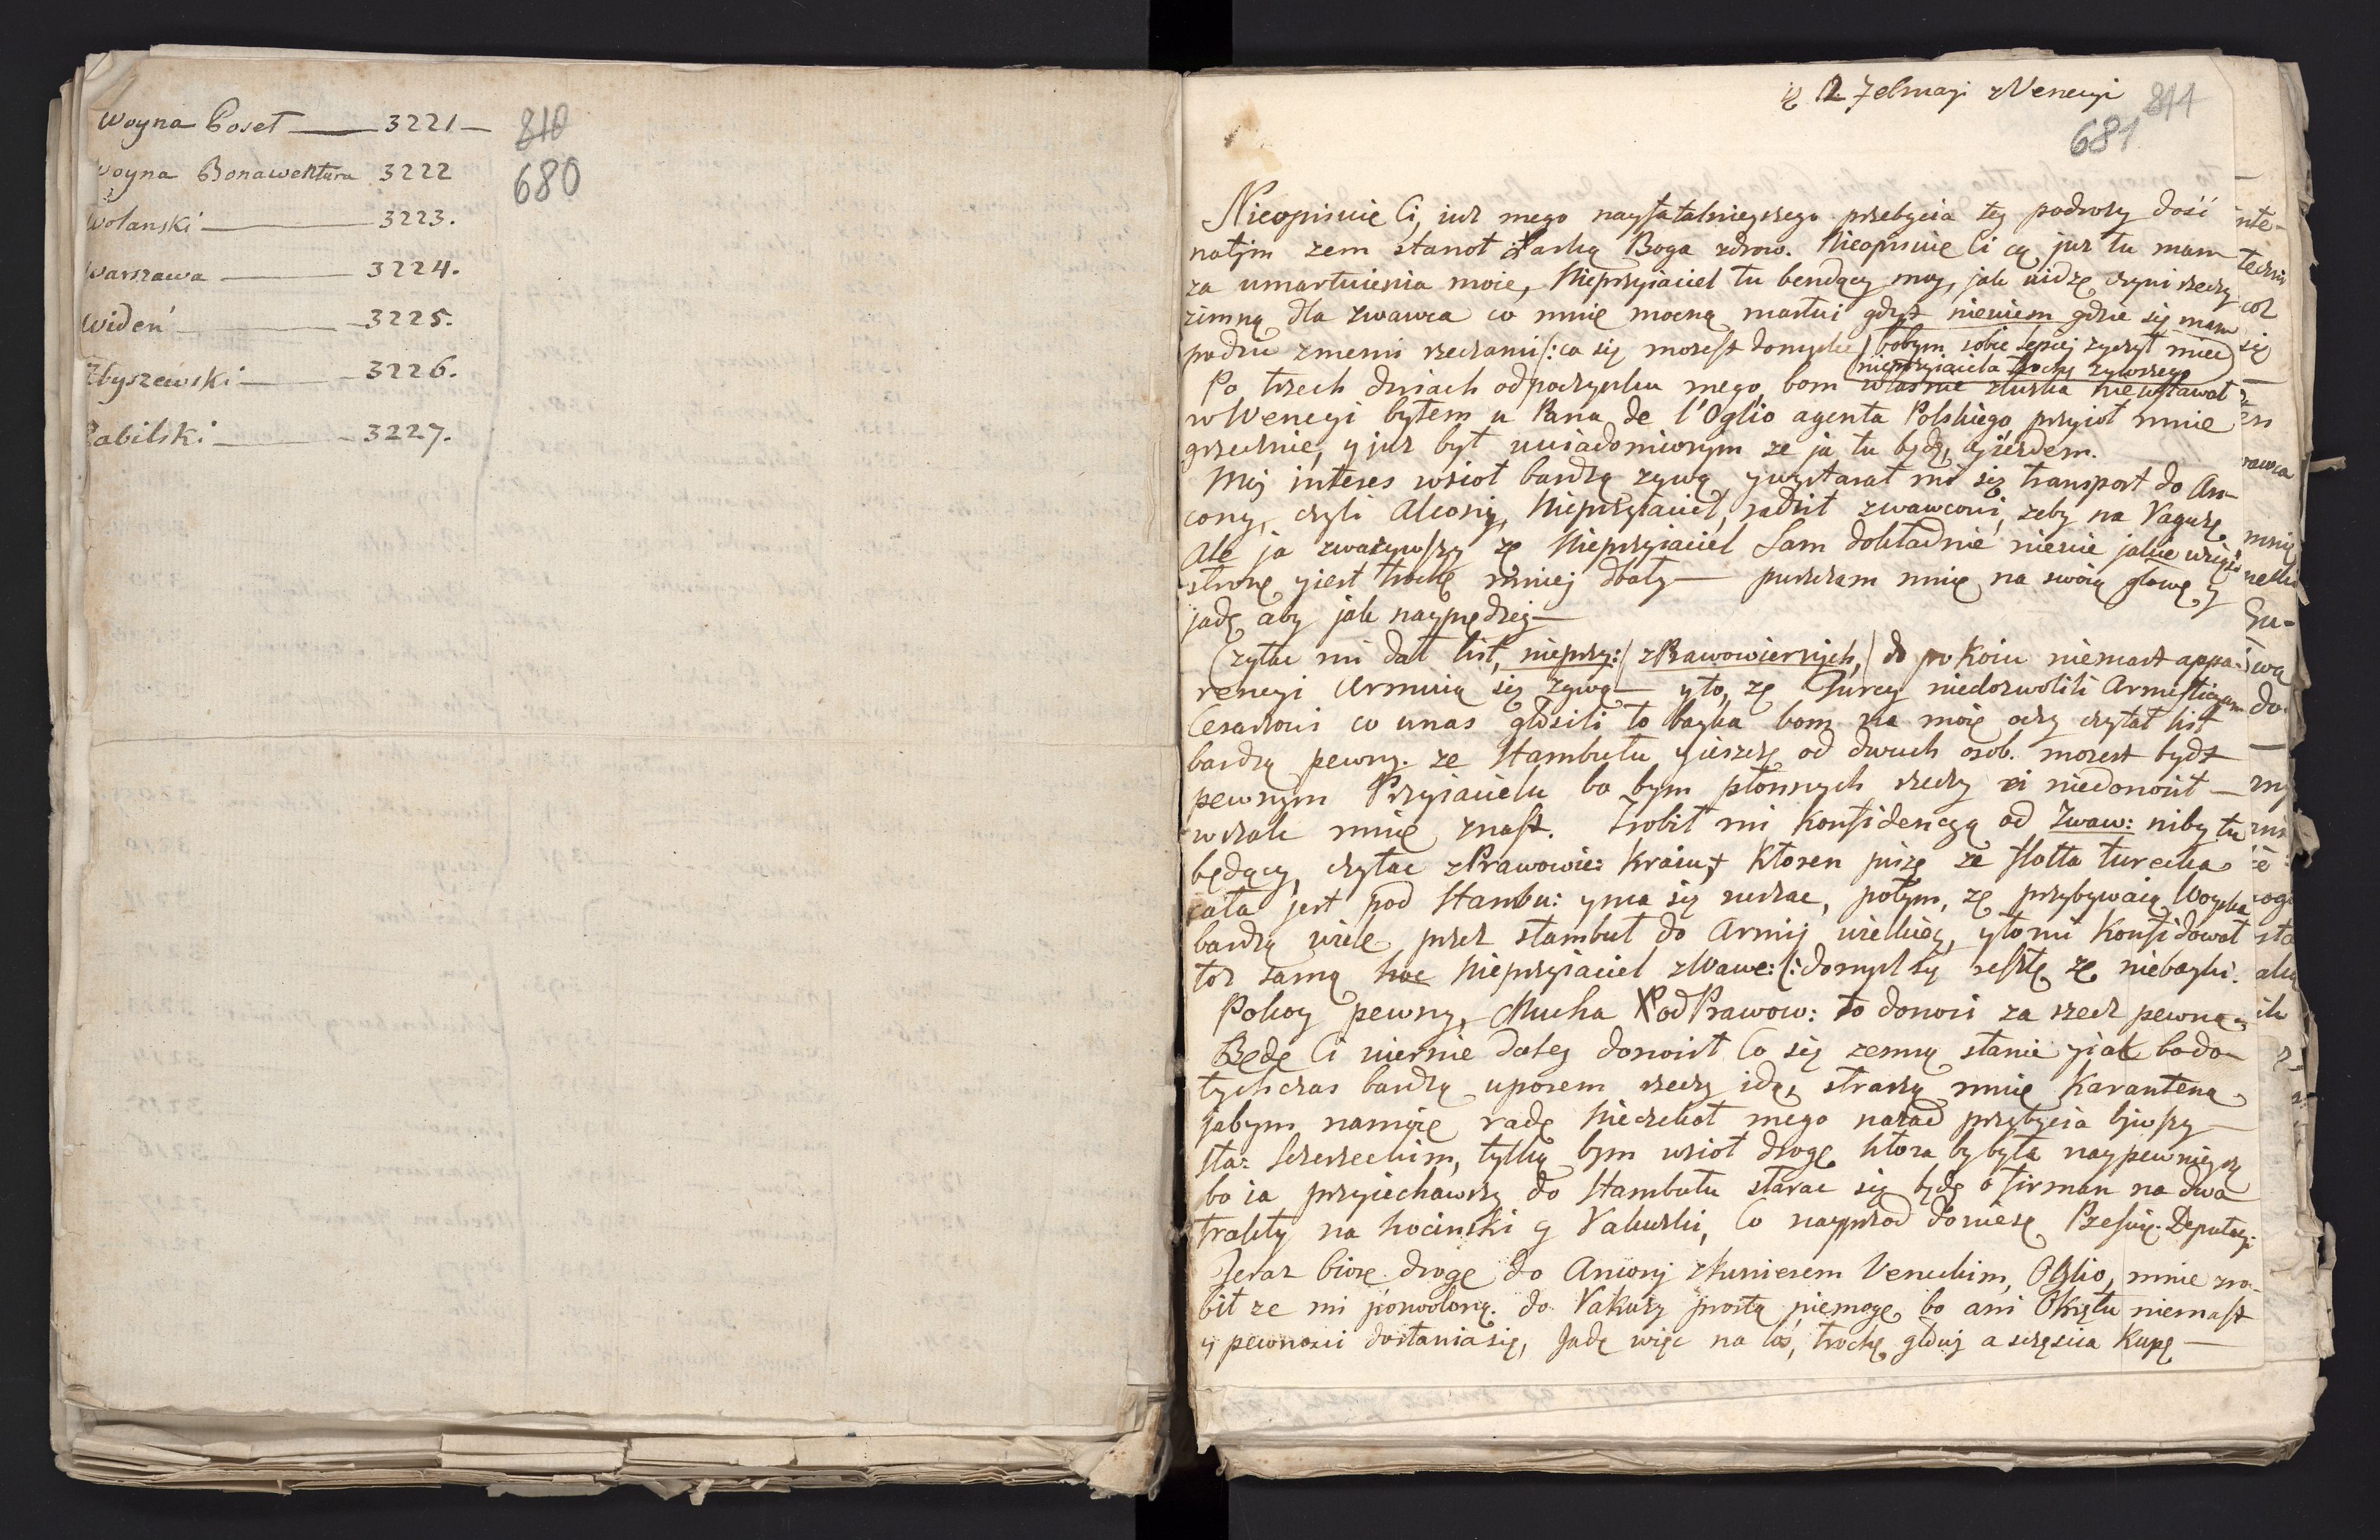 Woyna Poseł — 3221 —
810
Woyna Bonawentura 3222
680
Wolanski — 3223.
Warszawa — 3224.
Wideń — 3225.
Zbyszewski — 3226.
Zabilski — 3227.
12 7elmaji z Venecyi
811
681
Nieopisuię Ci, iuż mego nayfatalnieyszego przebycia tey podrozy dość
natym zem stanoł z łaską Boga zdrow. Nieopisuię Ci cę juz tu mam
za umartwienia moie, Nieprzyiaciel tu bendący moy, jak widzę czyni rzeczy
zimną dla zwawca co mnię mocną martwi gdyż niewiem gdzie się mam
podziu zmemi rzeczami /: co się możesz domyslić / bobym sobie lepiej zyczył miec
nieprzyiaciela trochę zywszego
Po trzech dniach odpoczynku mego, bom własnie złuszka niewstawał
w Wenecyi byłem u Pana de l'Oglio agenta Polskiego, przyioł mnie
grzecznie, y juz był uwiadomionym ze ja tu będę, yżiezdem.
Mój interes wzioł bardzą zywą, ywystarał mi się transport do An-
cony, czyli Alcony, Nieprzyiaciel, radził zwawcowi, zeby na Raguzę,
Ale ja zwazywszy zę Nieprzyiaciel sam dokładnie niewie jakie wziąść
stronę yjest trochę mniej dbały — puszczam mnię na swoią głowę y
jadę aby jak nayprędzej —
Czytac mi dał list, nieprzy: / z Prawowiernych, / do pokoiu niemasz appa-
rencyi Armuią się zywą — yto, zę Turcy niedozwolili Armisticyum
Cesarzowi co unas głosili to bayka bom na moię oczy czytał list
bardzą pewny. ze Stambułu yieszczę od dwuch osob. mozesz bydz
pewnym Przyiacielu bo bym płonnych rzeczy ci niedonosił —
wszak mnię znasz. Zrobił mi Konfidencyą od Zwaw: niby tu
będący, czytac z Prawowie: Kraiu, Ktoren piszę ze flotta turecka
cała jest pod Stambu: yma się ruszac, potym, zę przybywaią Woyska
bardzą wielę przez stambuł do Armij wielkiey, yto mi Konfidował
toz samą Nieprzyiaciel zwawc: /: domysl się resztę zę niebayki.
Pokoy pewny, Mucha od Prawow: to donosi za rzecz pewną
Będę Ci wiernie daley donosił Co się zemną stanie yiak bo do-
tychczas bardzą uporem rzeczy idą, straszą mnię Karanteną
jabym namoię radę nieczekoł mego nazad przybycia bywszy
sta: Szczerzeckim, tylką bym wzioł drogę ktora by była naypewnieyszą
bo ia przyiechawszy do Stambułu starac się będę o firman na dwa
trakty na hocimski y Rakuzki, Co nayprzod doniesę Prześwię: Deputacyi
Teraz biorę drogę do Ancony zkurierem Veneckim, Oglio, mnie zro-
bił ze mi pozwolonę. do Rakuzy prostą niemogę, bo ani Okrętu niemasz
y pewnosci dostaniasię, Jadę więc na łos, trochę głowy a szczęscia Kupę —